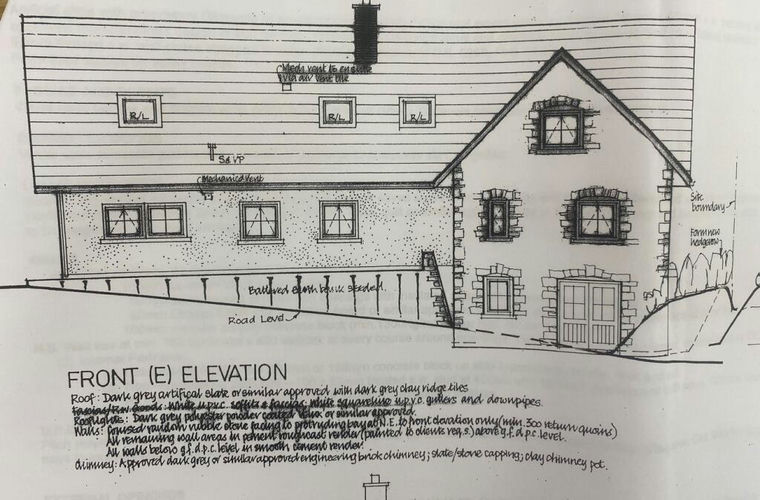 Mech vent to ensuite
via air vent tile
R/L
R/L
R/L
S&VP
Mechanical vent
Site
boundary
Form new
hedgerow
Battered earth bank seeded.
Road Level
FRONT (E) ELEVATION
Roof: Dark grey artifical slate or similar approved with dark grey clay ridge tiles
Fascias/ : White u.p.v.c. soffits & fascias; white squareline u.p.v.c. gutters and downpipes.
Rooflights: Dark grey polyester powder coated velux or similar approved.
Walls: Coursed random rubble stone facing to protruding bay at N.E. to front elevation only (min. 300 return quoins)
All remaining wall areas in cement roughcast render (painted to clients req.s.) above g.f. d.p.c. level.
All walls below g.f. d.p.c. level in smooth cement render
chimney: Approved dark grey or similar approved engineering brick chimney; slate/stone capping; clay chimney pot.